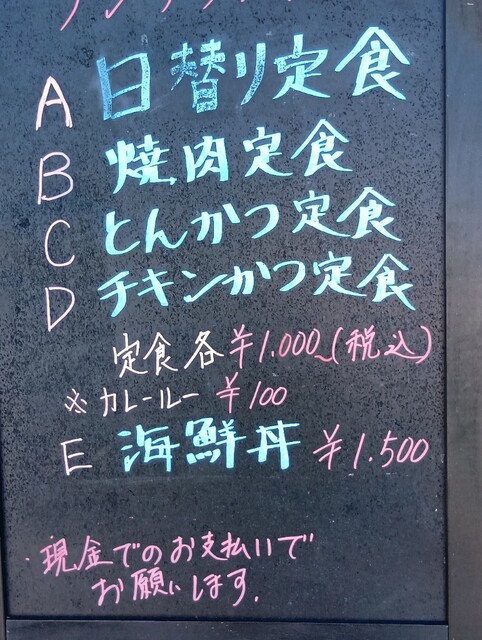 A 日替り定食
B 焼肉定食
C とんかつ定食
D チキンかつ定食
定食各￥1.000(税込)
※カレールー ￥100
E 海鮮丼 ￥1.500
・現金でのお支払いで
お願いします.